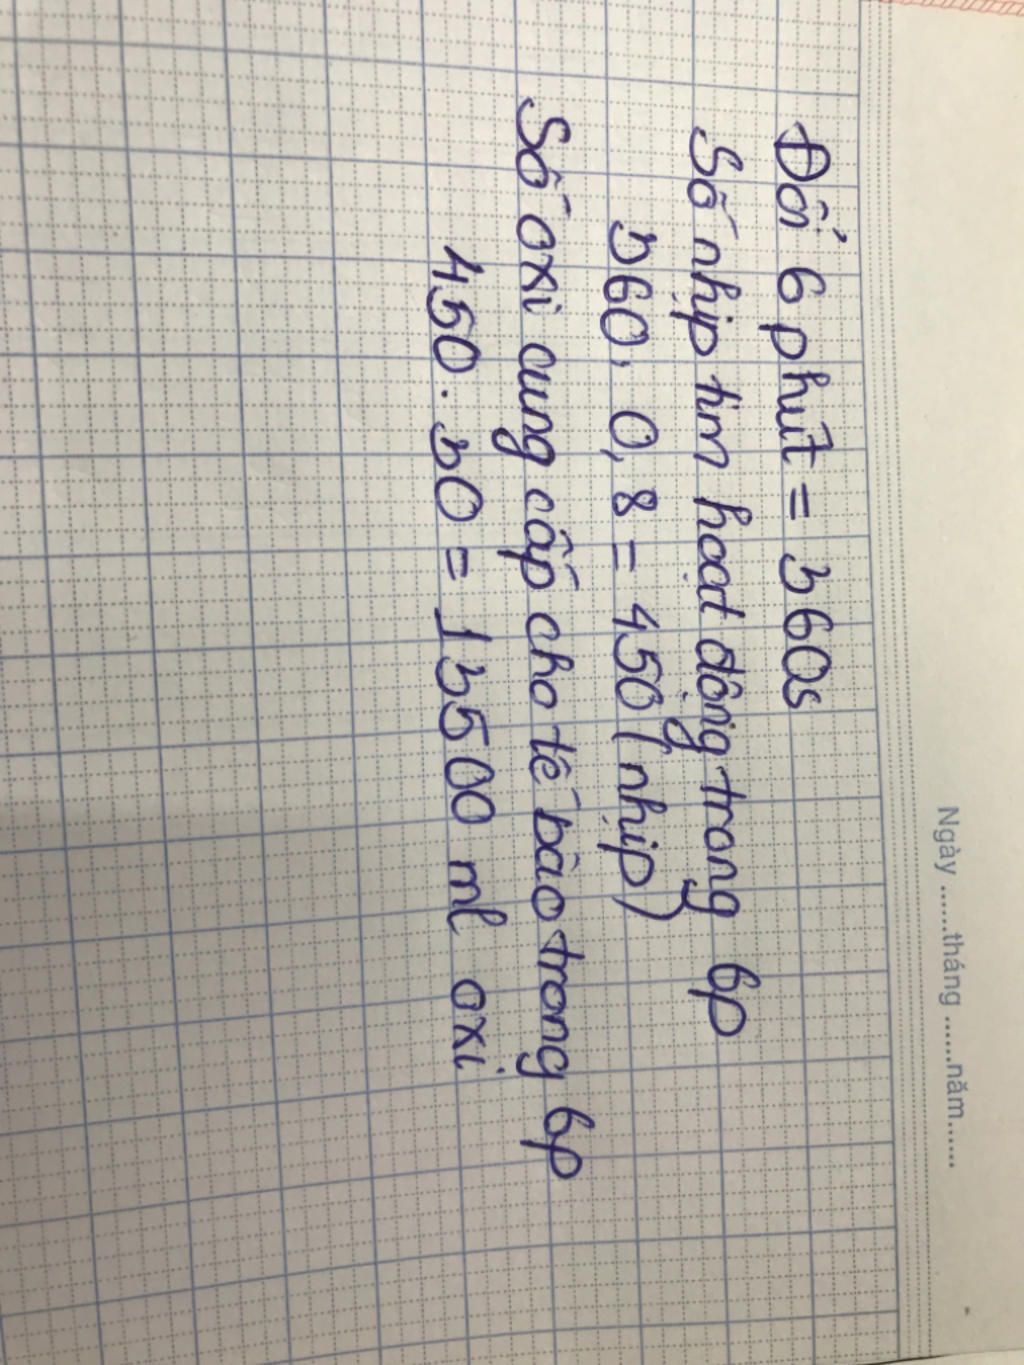 Ngày ......tháng ......năm......
Đổi 6 phút = 360s
Số nhịp tim hoạt động trong 6p
360, 0,8 = 450 (nhịp)
Số oxi cung cấp cho tế bào trong 6p
450.30 = 13500 ml oxi